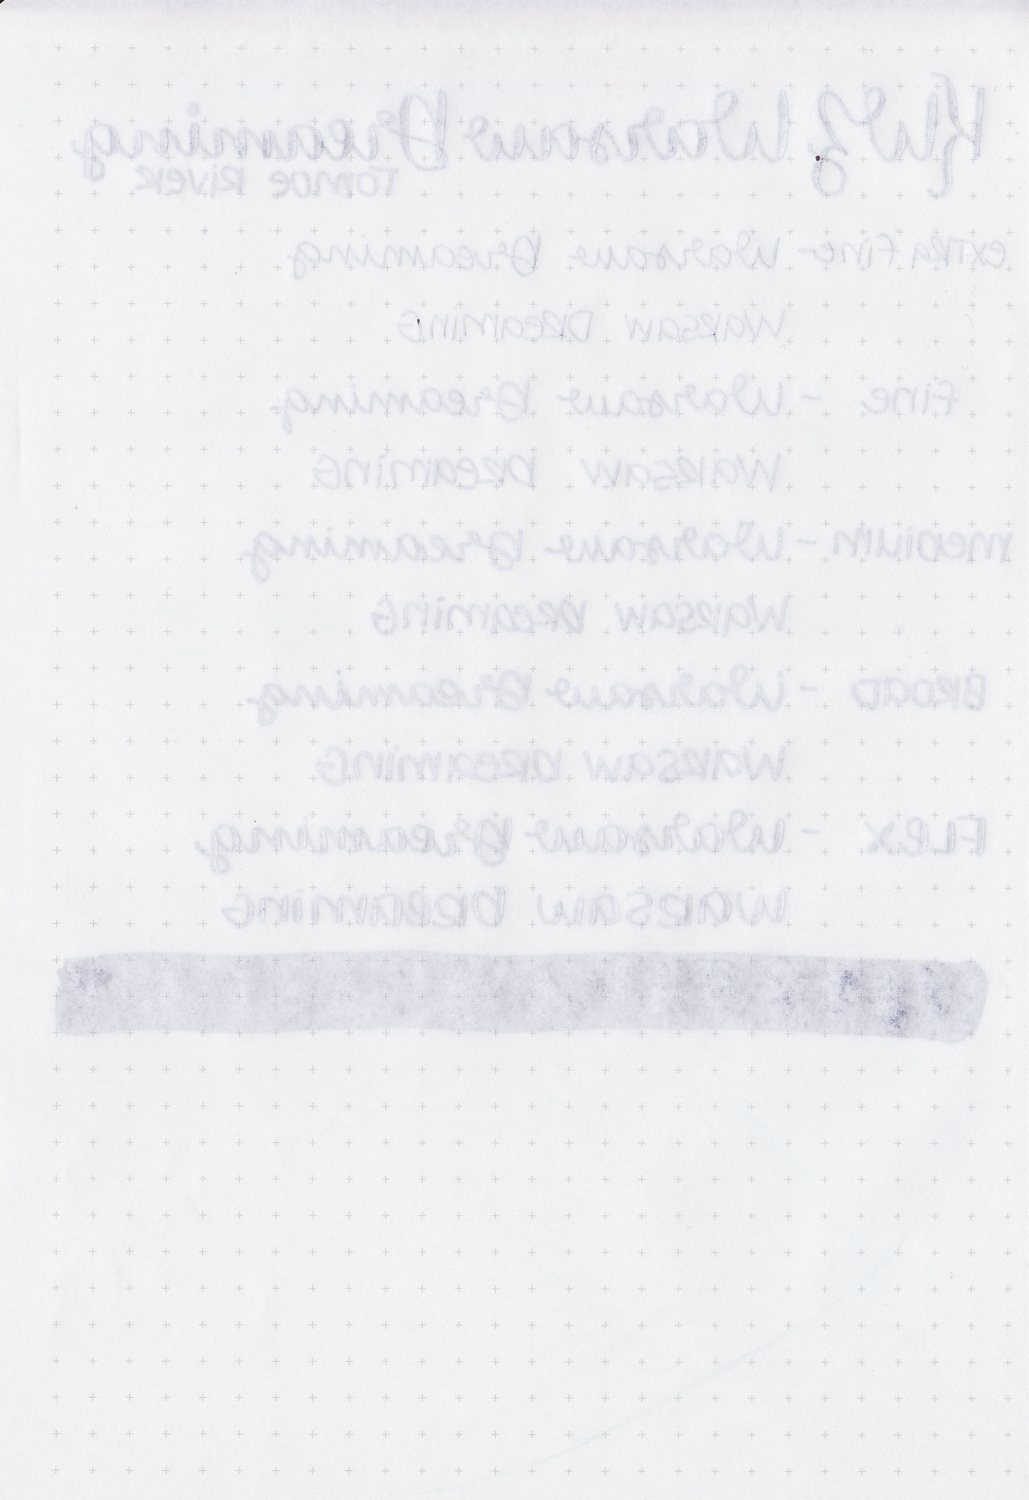 KWZ Warsaw Dreaming
Tomoe River
Extra Fine - Warsaw Dreaming
Warsaw Dreaming
Fine - Warsaw Dreaming
Warsaw Dreaming
Medium - Warsaw Dreaming
Warsaw Dreaming
Broad - Warsaw Dreaming
Warsaw Dreaming
Flex - Warsaw Dreaming
Warsaw Dreaming